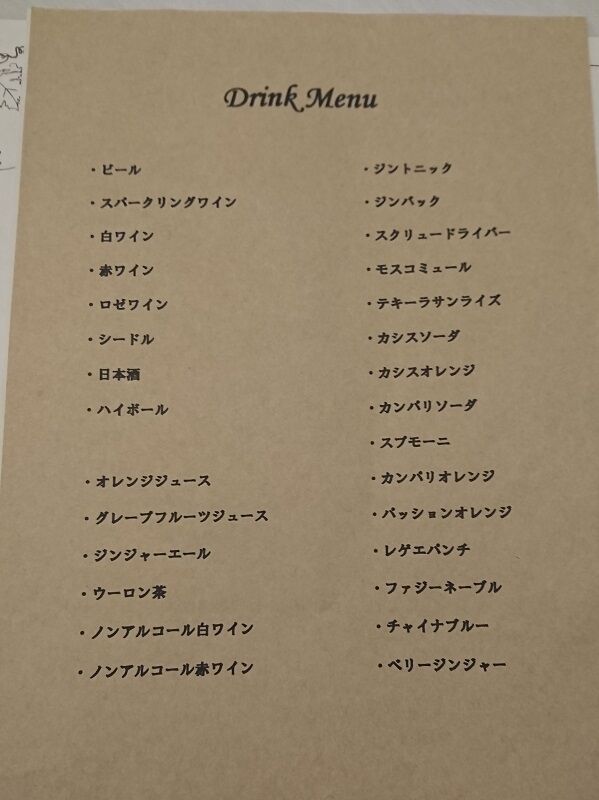 Drink Menu
・ビール
・スパークリングワイン
・白ワイン
・赤ワイン
・ロゼワイン
・シードル
・日本酒
・ハイボール
・オレンジジュース
・グレープフルーツジュース
・ジンジャーエール
・ウーロン茶
・ノンアルコール白ワイン
・ノンアルコール赤ワイン
・ジントニック
・ジンバック
・スクリュードライバー
・モスコミュール
・テキーラサンライズ
・カシスソーダ
・カシスオレンジ
・カンパリソーダ
・スプモーニ
・カンパリオレンジ
・パッションオレンジ
・レゲエパンチ
・ファジーネーブル
・チャイナブルー
・ベリージンジャー